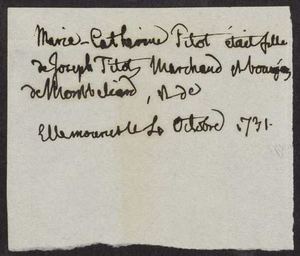 Marie-Catherine Titot était fille
de Joseph Titot, Marchand et bourgeois
de Montbeliard, et de
Elle mourut le Octobre 1731.